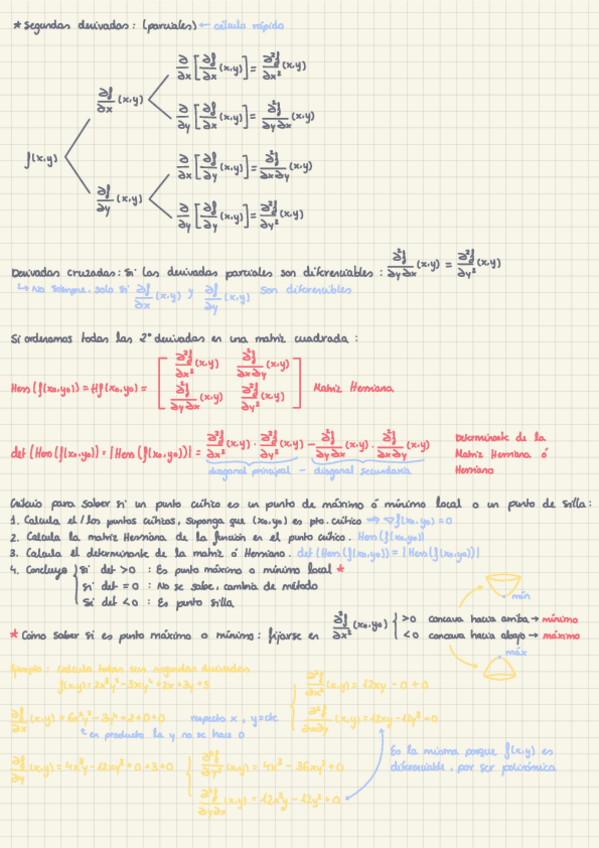 * Segundas derivadas: (parciales) ← cálculo rápido
f(x,y)
∂f/∂x (x,y)
∂/∂x [∂f/∂x (x,y)] = ∂²f/∂x² (x,y)
∂/∂y [∂f/∂x (x,y)] = ∂²f/∂y∂x (x,y)
∂f/∂y (x,y)
∂/∂x [∂f/∂y (x,y)] = ∂²f/∂x∂y (x,y)
∂/∂y [∂f/∂y (x,y)] = ∂²f/∂y² (x,y)
Derivadas cruzadas: Si las derivadas parciales son diferenciables : ∂²f/∂y∂x (x,y) = ∂²f/∂y² (x,y)
↳ No siempre, solo si ∂f/∂x (x,y) y ∂f/∂y (x,y) son diferenciables
Si ordenamos todas las 2ª derivadas en una matriz cuadrada :
Hess (f(x₀,y₀)) = Hf(x₀,y₀) = [ ∂²f/∂x² (x,y) ∂²f/∂x∂y (x,y)
∂²f/∂y∂x (x,y) ∂²f/∂y² (x,y) ] Matriz Hessiana
det (Hess (f(x₀,y₀)) = |Hess (f(x₀,y₀))| = ∂²f/∂x² (x,y) · ∂²f/∂y² (x,y) − ∂²f/∂y∂x (x,y) · ∂²f/∂x∂y (x,y)
diagonal principal − diagonal secundaria
Determinante de la
Matriz Hessiana ó
Hessiano
Cálculo para saber si un punto crítico es un punto de máximo ó mínimo local o un punto de silla :
1. Calcula el / los puntos críticos, suponga que (x₀,y₀) es pto. crítico ⟹ ∇f(x₀,y₀) = 0
2. Calcula la matriz Hessiana de la función en el punto crítico. Hess (f(x₀,y₀))
3. Calcula el determinante de la matriz ó Hessiano. det (Hess (f(x₀,y₀)) = |Hess (f(x₀,y₀))|
4. Concluye { si det > 0 : Es punto máximo o mínimo local *
si det = 0 : No se sabe, cambia de método
si det < 0 : Es punto silla
mín
* Como saber si es punto máximo o mínimo : fijarse en ∂²f/∂x² (x₀,y₀) { >0 concava hacia arriba → mínimo
<0 concava hacia abajo → máximo
máx
Ejemplo : calcula todas sus segundas derivadas
f(x,y) = 2x³y² − 3xy⁴ + 2x + 3y + 5
∂f/∂x (x,y) = 6x²y² − 3y⁴ + 2 + 0 + 0 respecto x , y = cte
en producto la y no se hace 0
∂²f/∂x² (x,y) = 12xy − 0 + 0
∂²f/∂x∂y (x,y) = 12xy − 12y³ + 0
∂f/∂y (x,y) = 4x³y − 12xy³ + 0 + 3 + 0
∂²f/∂y² (x,y) = 4x³ − 36xy² + 0
∂²f/∂y∂x (x,y) = 12x²y − 12y³ + 0
Es la misma porque f(x,y) es
diferenciable, por ser polinómica